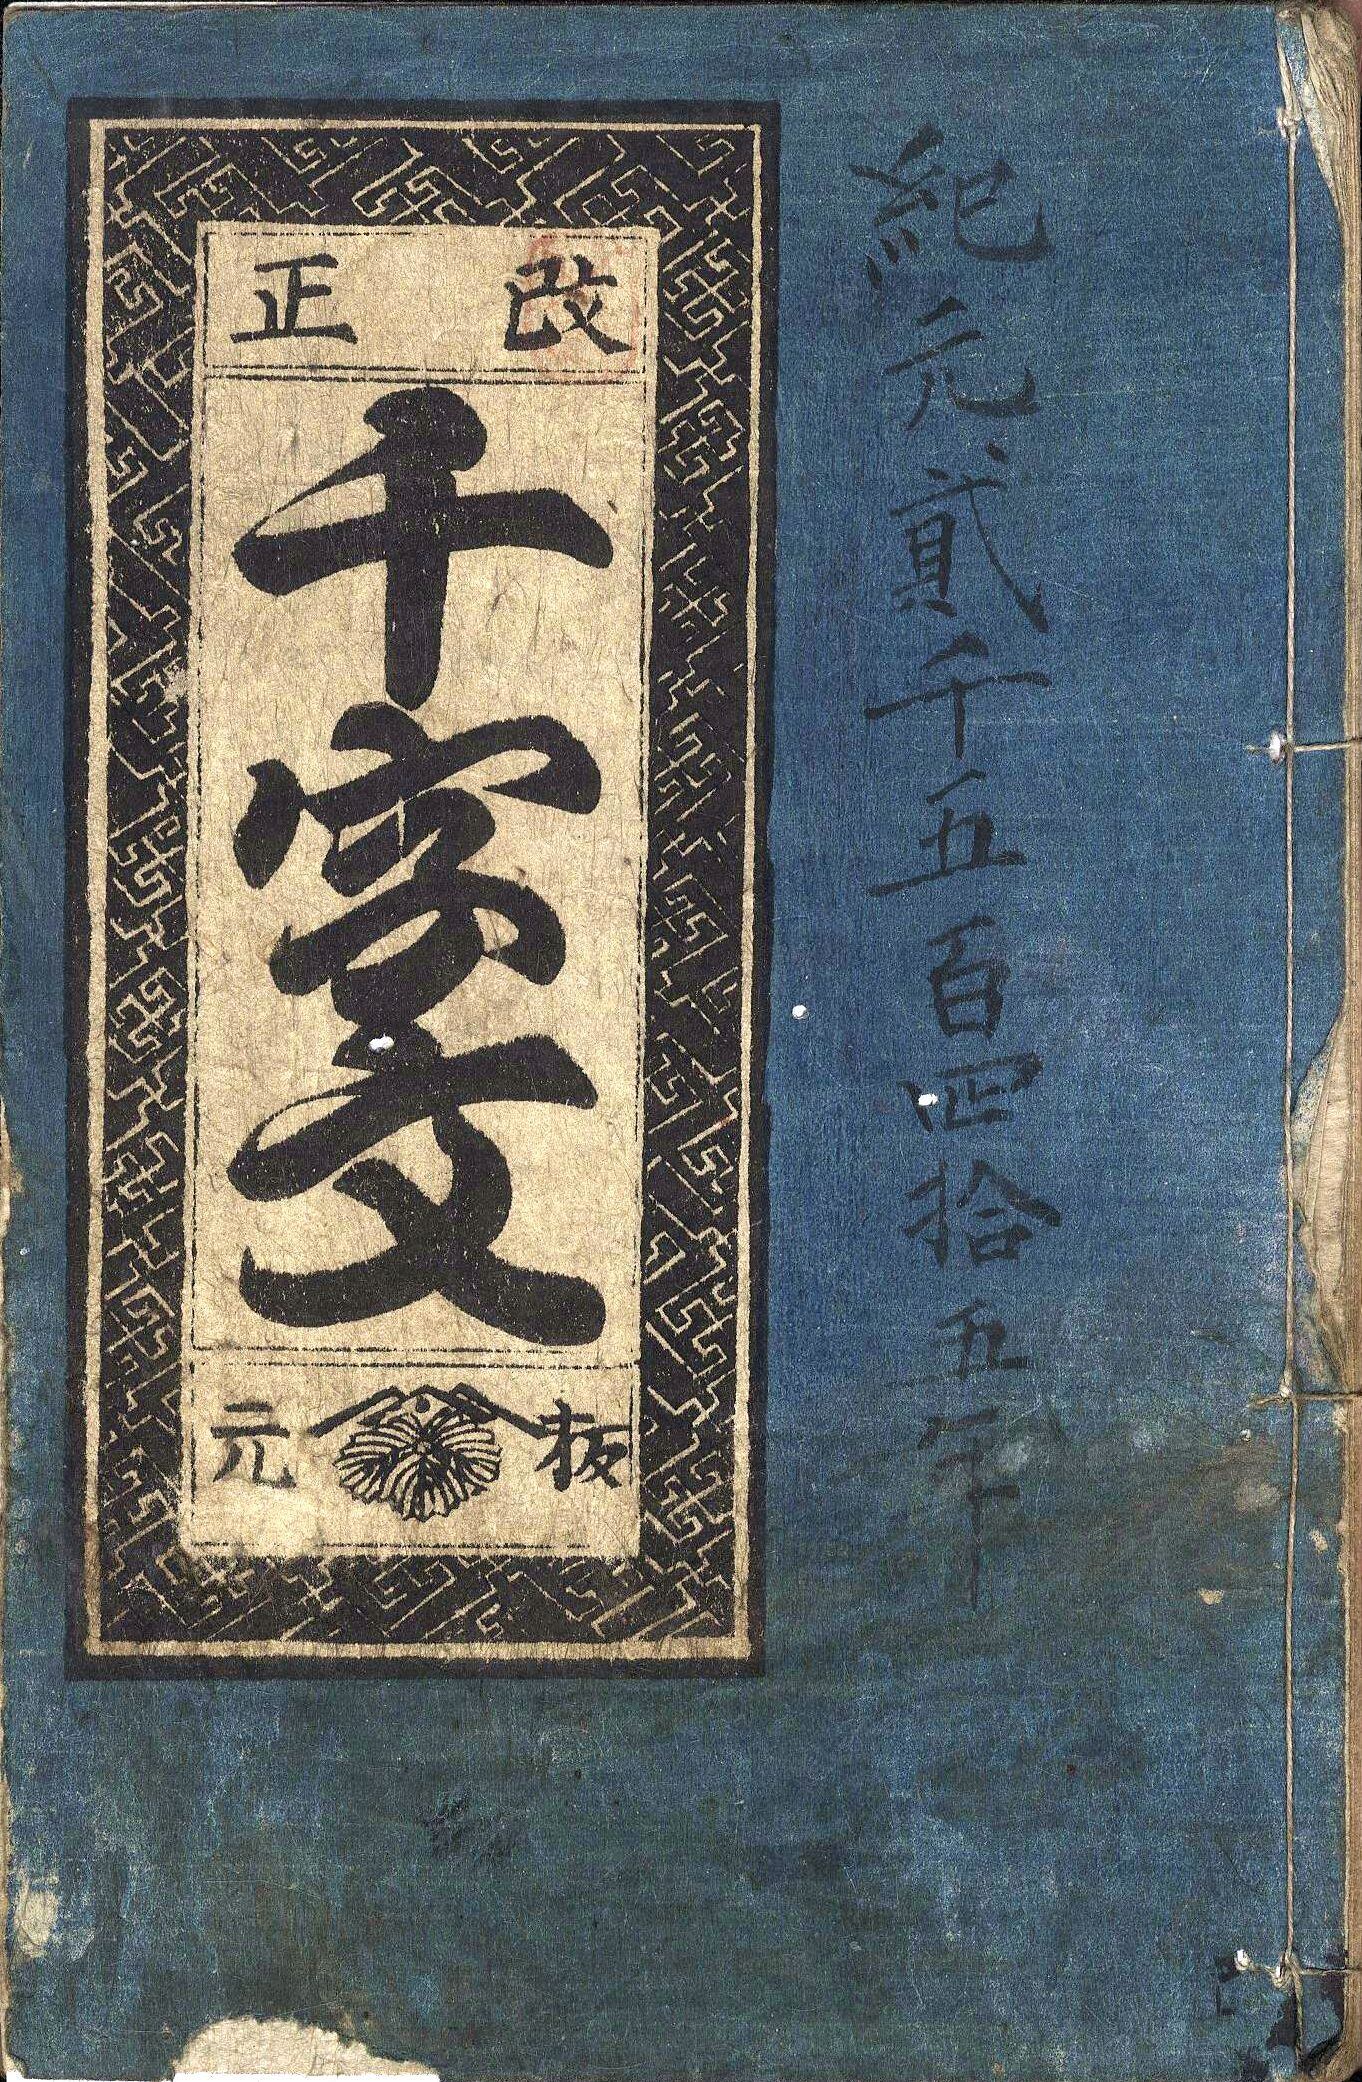 紀元貳千五百四拾五年
改正
千字文
板元